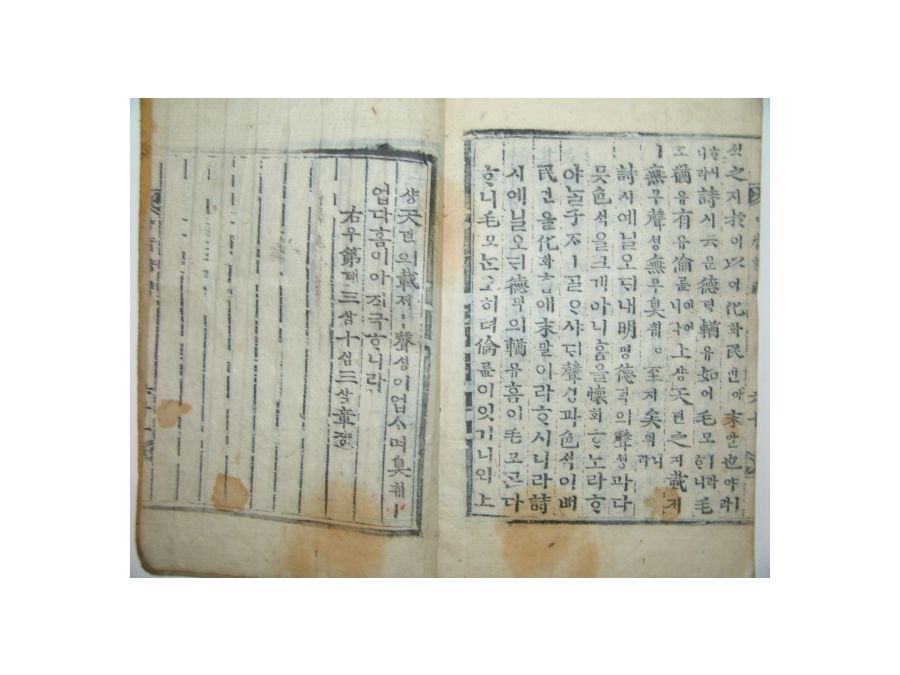 석之지於어以이化화民민애末말也야ㅣ라
ᄒᆞ시니라詩시云운德덕輶유如여毛모ㅣ라ᄒᆞ니毛모
도猶유有유倫륜上샹天텬之지載ᄌᆡ
ㅣ無무聲셩無무臭취至지矣의니라
詩시예닐오ᄃᆡ내明명德덕의聲셩과다
ᄆᆞᆺ色석을크게아니홈을懷회ᄒᆞ노라ᄒᆞ
야ᄂᆞᆯ子ᄌᆞㅣᄀᆞᆯᄋᆞ샤ᄃᆡ聲셩과色석이ᄡᅥ
民민을化화홈애末말이라ᄒᆞ시니라詩
시예닐오ᄃᆡ德덕의輶유홈이毛모ᄀᆞᆮ다
ᄒᆞ니毛모ᄂᆞᆫ오히려倫륜이잇거니와上
샹天텬의載ᄌᆡㅣ聲셩이업ᄉᆞ며臭취ㅣ
업다홈이아지극ᄒᆞ니라
右우第뎨三삼十십三삼章쟝